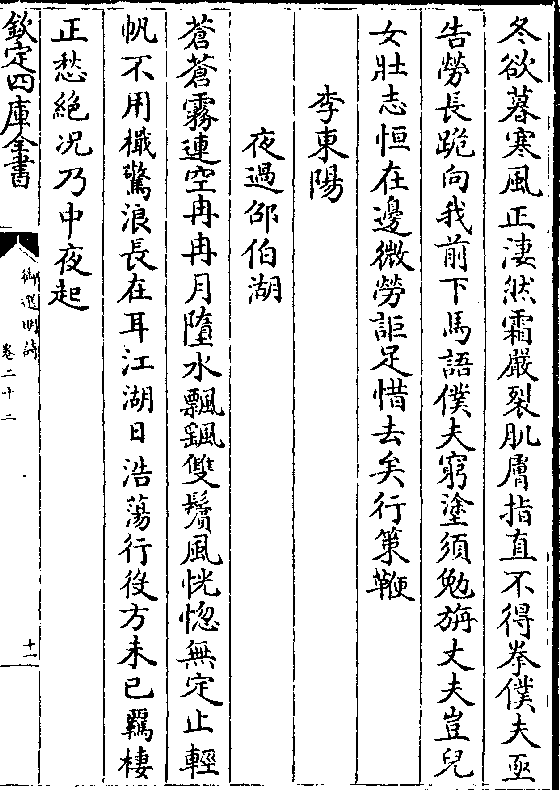 冬欲暮寒風正淒然霜嚴裂肌膚指直不得拳僕夫亟
告勞長跪向我前下馬語僕夫窮塗須勉旃丈夫豈兒
女壯志恒在邊微勞詎足惜去矣行策鞭
李東陽
夜過邵伯湖
蒼蒼霧連空冉冉月墮水飄颻雙鬢風恍惚無定止輕
帆不用檝驚浪長在耳江湖日浩蕩行役方未已羈棲
正愁絶况乃中夜起
欽定四庫全書
御選明詩
卷二十二
十一